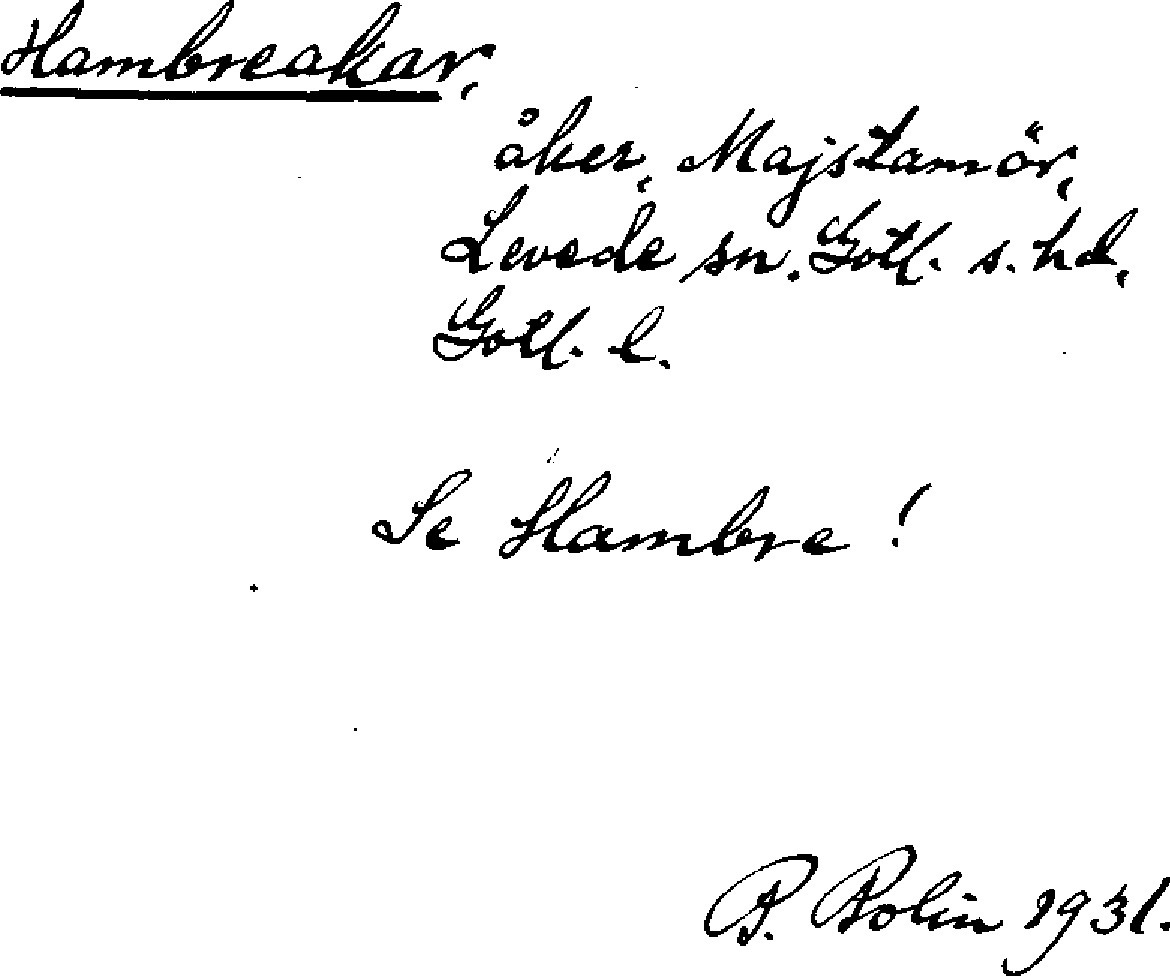 Hambreakar,
åker, Majstamör,
Levede sn. Gotl. s. hd,
Gotl. l.
Se Hambre!
P. Rolin 1931.